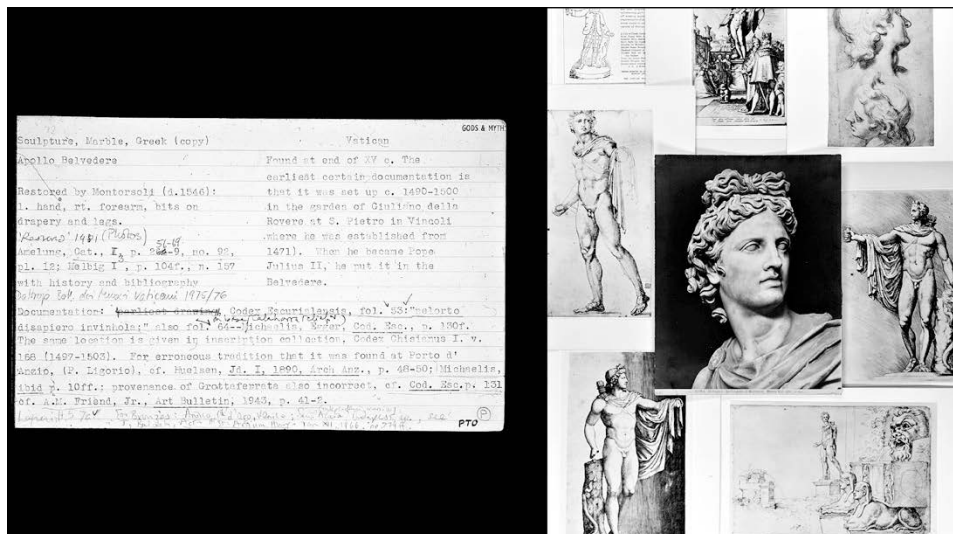 GODS & MYTH
Sculpture, Marble, Greek (copy) Vatican
Apollo Belvedere
Restored by Montorsoli (d.1546):
l. hand, rt. forearm, bits on
drapery and legs.
1941 (Photos)
Amelung, Cat., I, p. 256-69, no. 92,
pl. 12; Helbig I, p. 104f., n. 157
with history and bibliography
Found at end of XV c. The
earliest certain documentation is
that it was set up c. 1490-1500
in the garden of Giuliano della
Rovere at S. Pietro in Vincoli
where he was established from
1471). When he became Pope
Julius II, he put it in the
Belvedere.
Boll. dei Musei Vaticani 1975/76
Documentation: earliest drawing, Codex Escurialensis, fol. 53: "nelorto
disapiero invinhola;" also fol. 64--Michaelis, Egger, Cod. Esc., p. 130f.
The same location is given in inscription collection, Codex Chisianus I. v.
168 (1497-1503). For erroneous tradition that it was found at Porto d'
Anzio, (P. Ligorio), cf. Huelsen, Jd. I, 1890, Arch Anz., p. 48-50; Michaelis,
ibid p. 10ff.; provenance of Grottaferrata also incorrect, cf. Cod. Esc. p. 131
cf. A.M. Friend, Jr., Art Bulletin, 1943, p. 41-2.
P
PTO